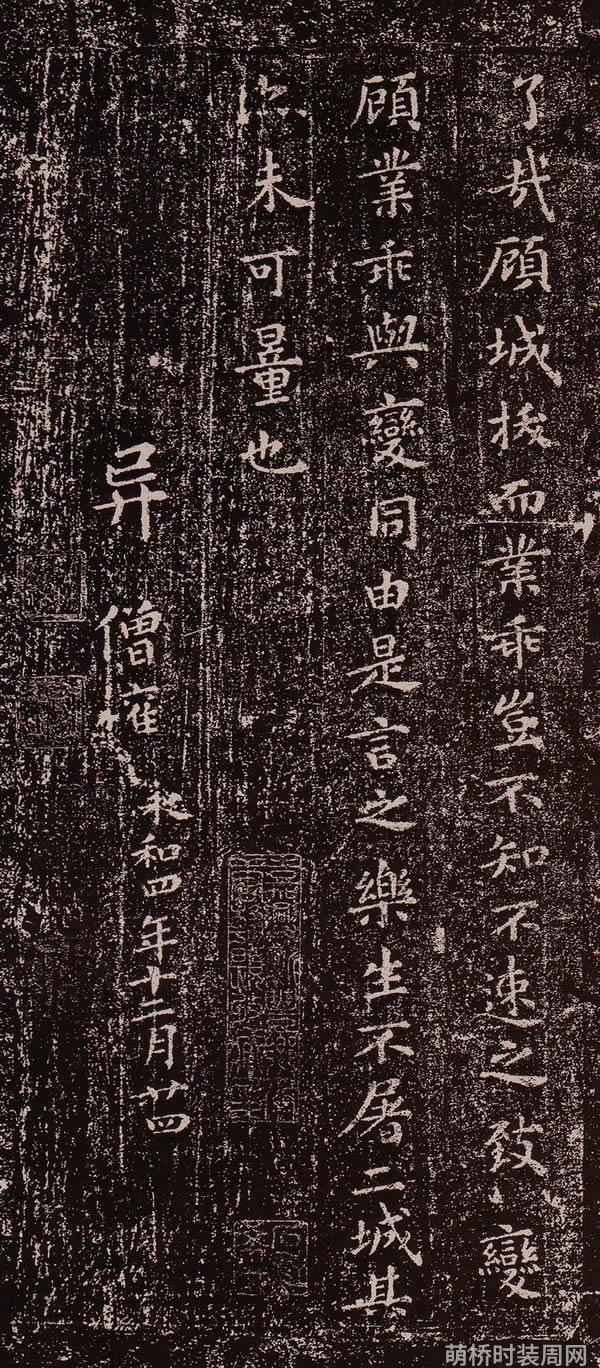 了哉顧城拔而業乖豈不知不速之致變
顧業乖與變同由是言之樂生不屠二城其
亦未可量也
异 僧權
永和四年十二月廿四
萌桥时装周网